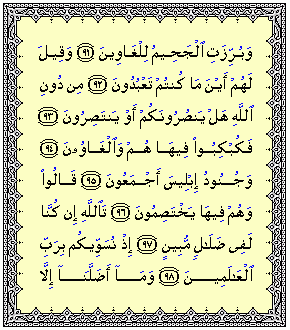 وَبُرِّزَتِ ٱلْجَحِيمُ لِلْغَاوِينَ ﴿٩١﴾ وَقِيلَ
لَهُمْ أَيْنَ مَا كُنتُمْ تَعْبُدُونَ ﴿٩٢﴾ مِن دُونِ
ٱللَّهِ هَلْ يَنصُرُونَكُمْ أَوْ يَنتَصِرُونَ ﴿٩٣﴾
فَكُبْكِبُوا۟ فِيهَا هُمْ وَٱلْغَاوُۥنَ ﴿٩٤﴾
وَجُنُودُ إِبْلِيسَ أَجْمَعُونَ ﴿٩٥﴾ قَالُوا۟
وَهُمْ فِيهَا يَخْتَصِمُونَ ﴿٩٦﴾ تَٱللَّهِ إِن كُنَّا
لَفِى ضَلَـٰلٍ مُّبِينٍ ﴿٩٧﴾ إِذْ نُسَوِّيكُم بِرَبِّ
ٱلْعَـٰلَمِينَ ﴿٩٨﴾ وَمَآ أَضَلَّنَآ إِلَّا